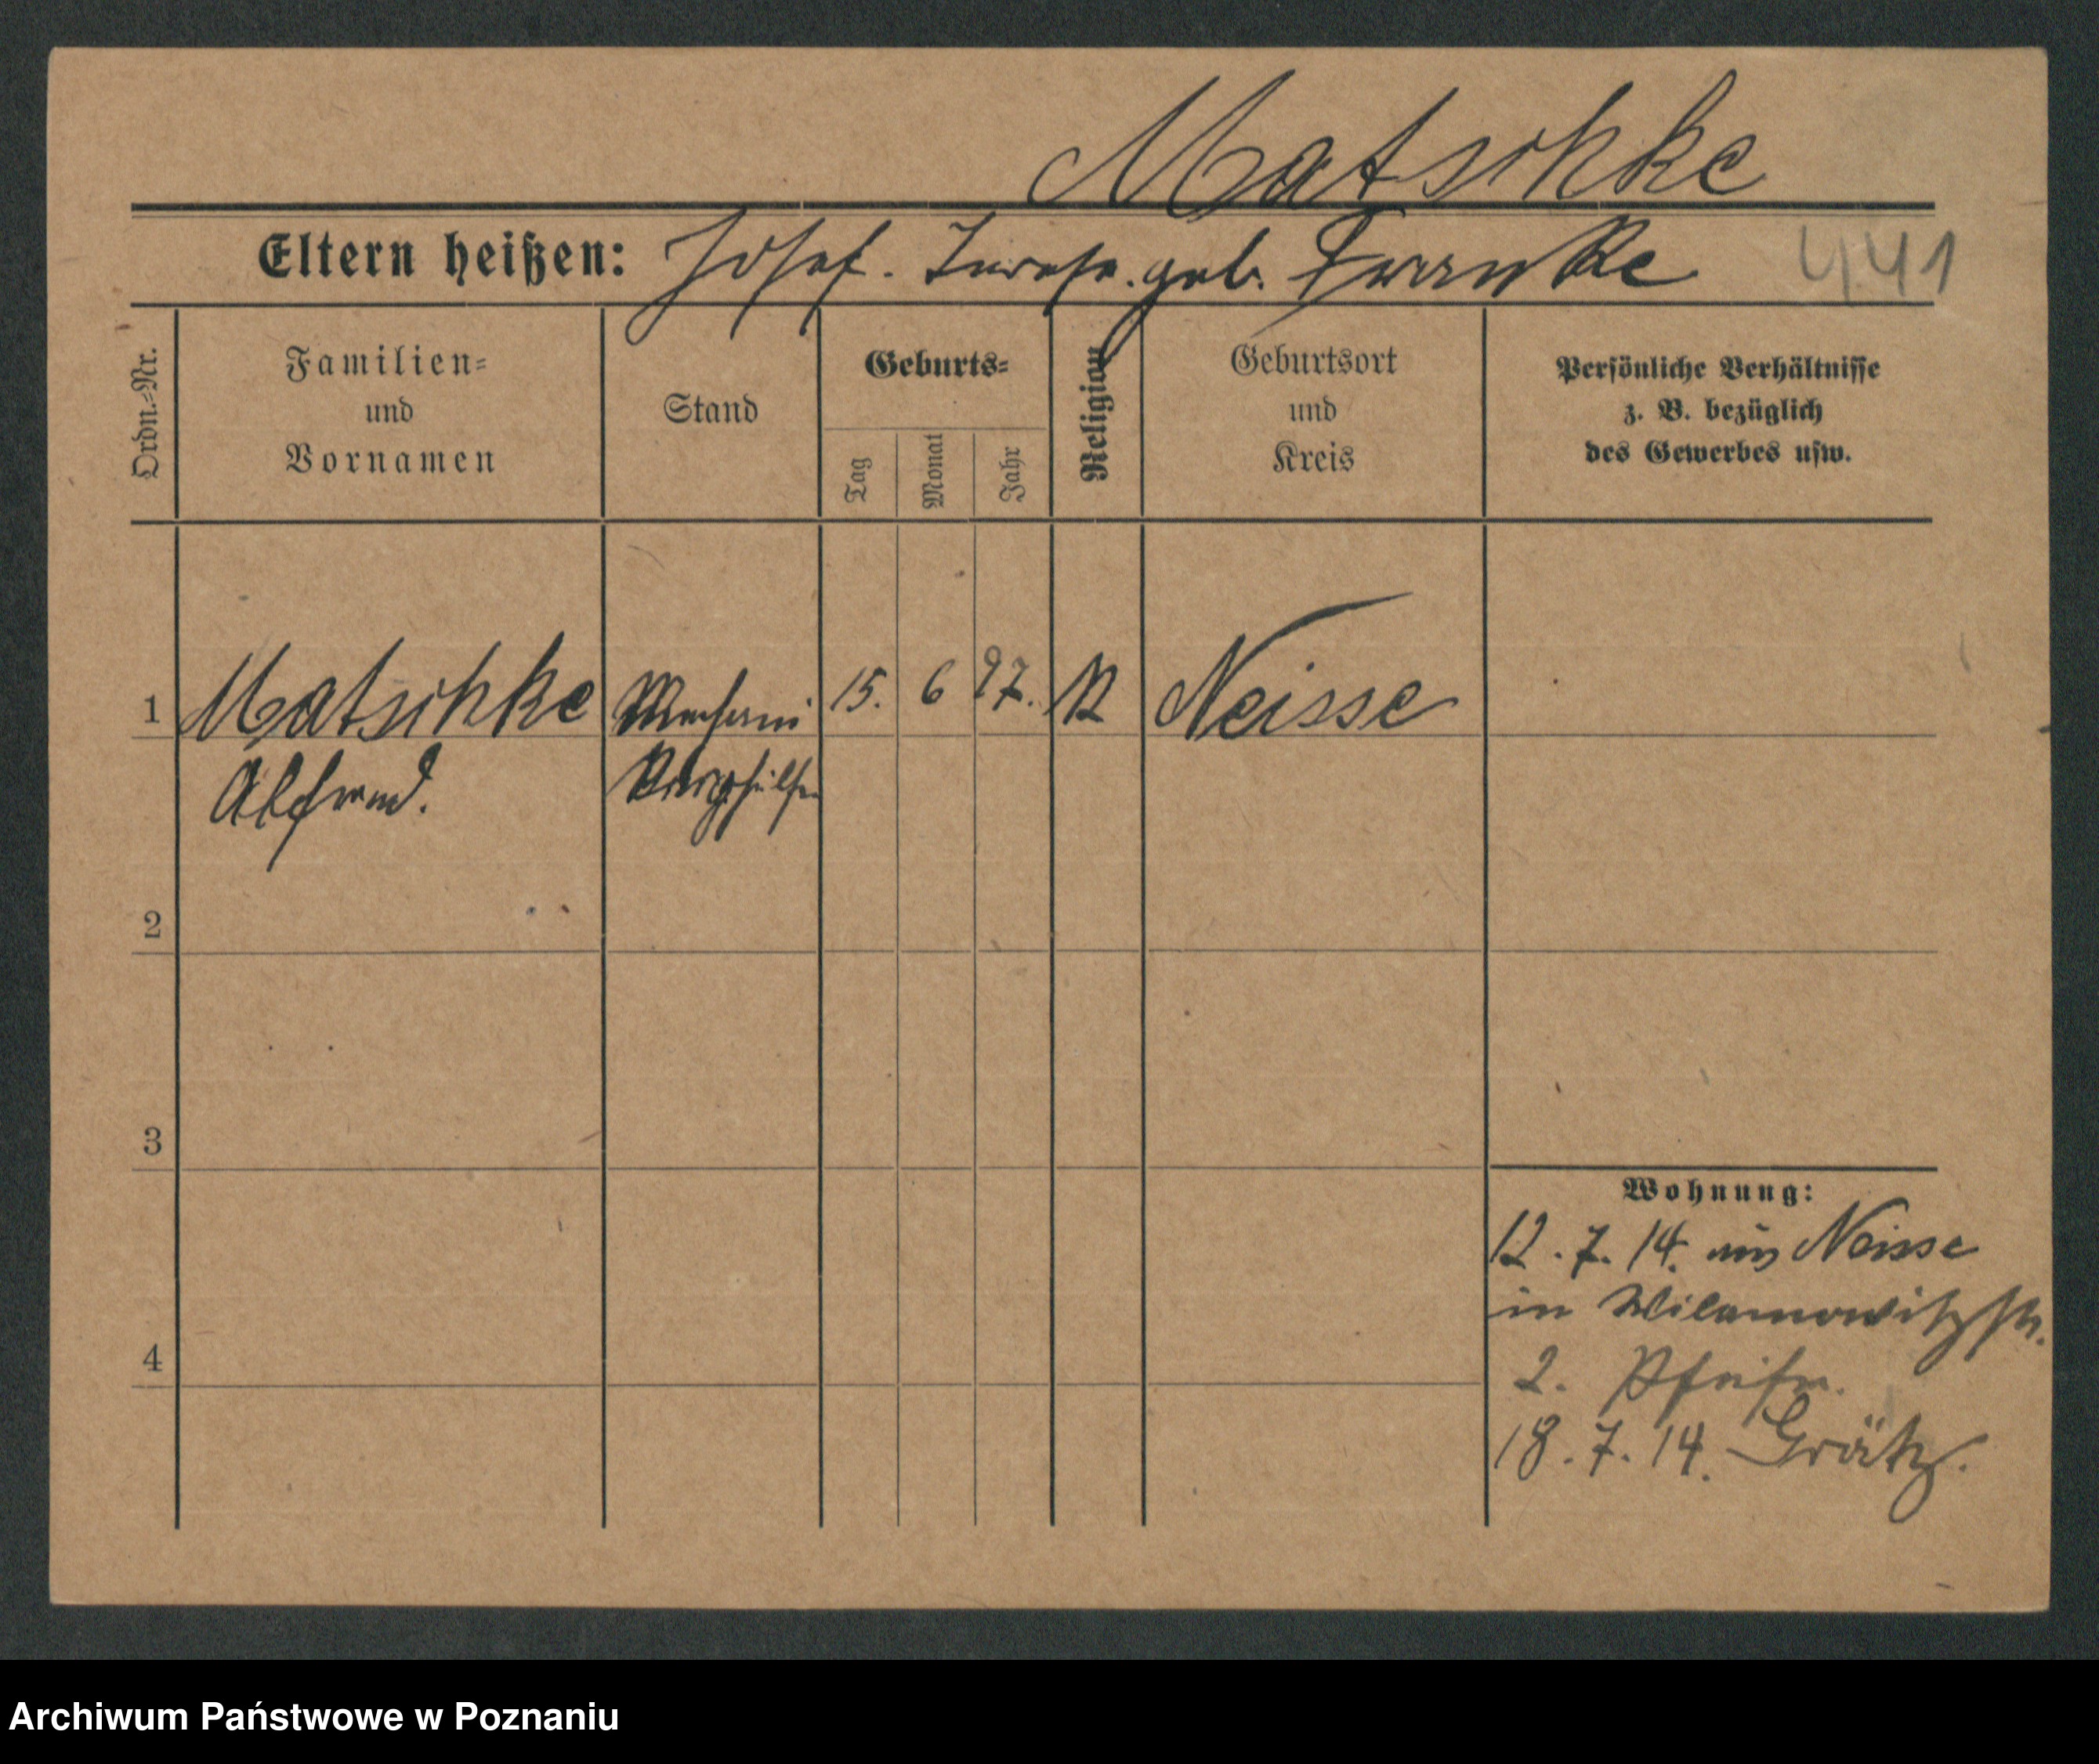 Matschke
Eltern heißen: Josef. Therese. geb. Franke 441
Ordn.-Nr.
Familien-
und
Vornamen
Stand
Geburts-
Tag
Monat
Jahr
Religion
Geburtsort
und
Kreis
Persönliche Verhältnisse
z. B. bezüglich
des Gewerbes usw.
1 Matschke 15. 6 97. Neisse
Alfred.
2
3
4
Wohnung:
12.7.14. aus Neisse
in Wilamowitzstr.
2.
18.7.14. Grätz.
Archiwum Państwowe w Poznaniu